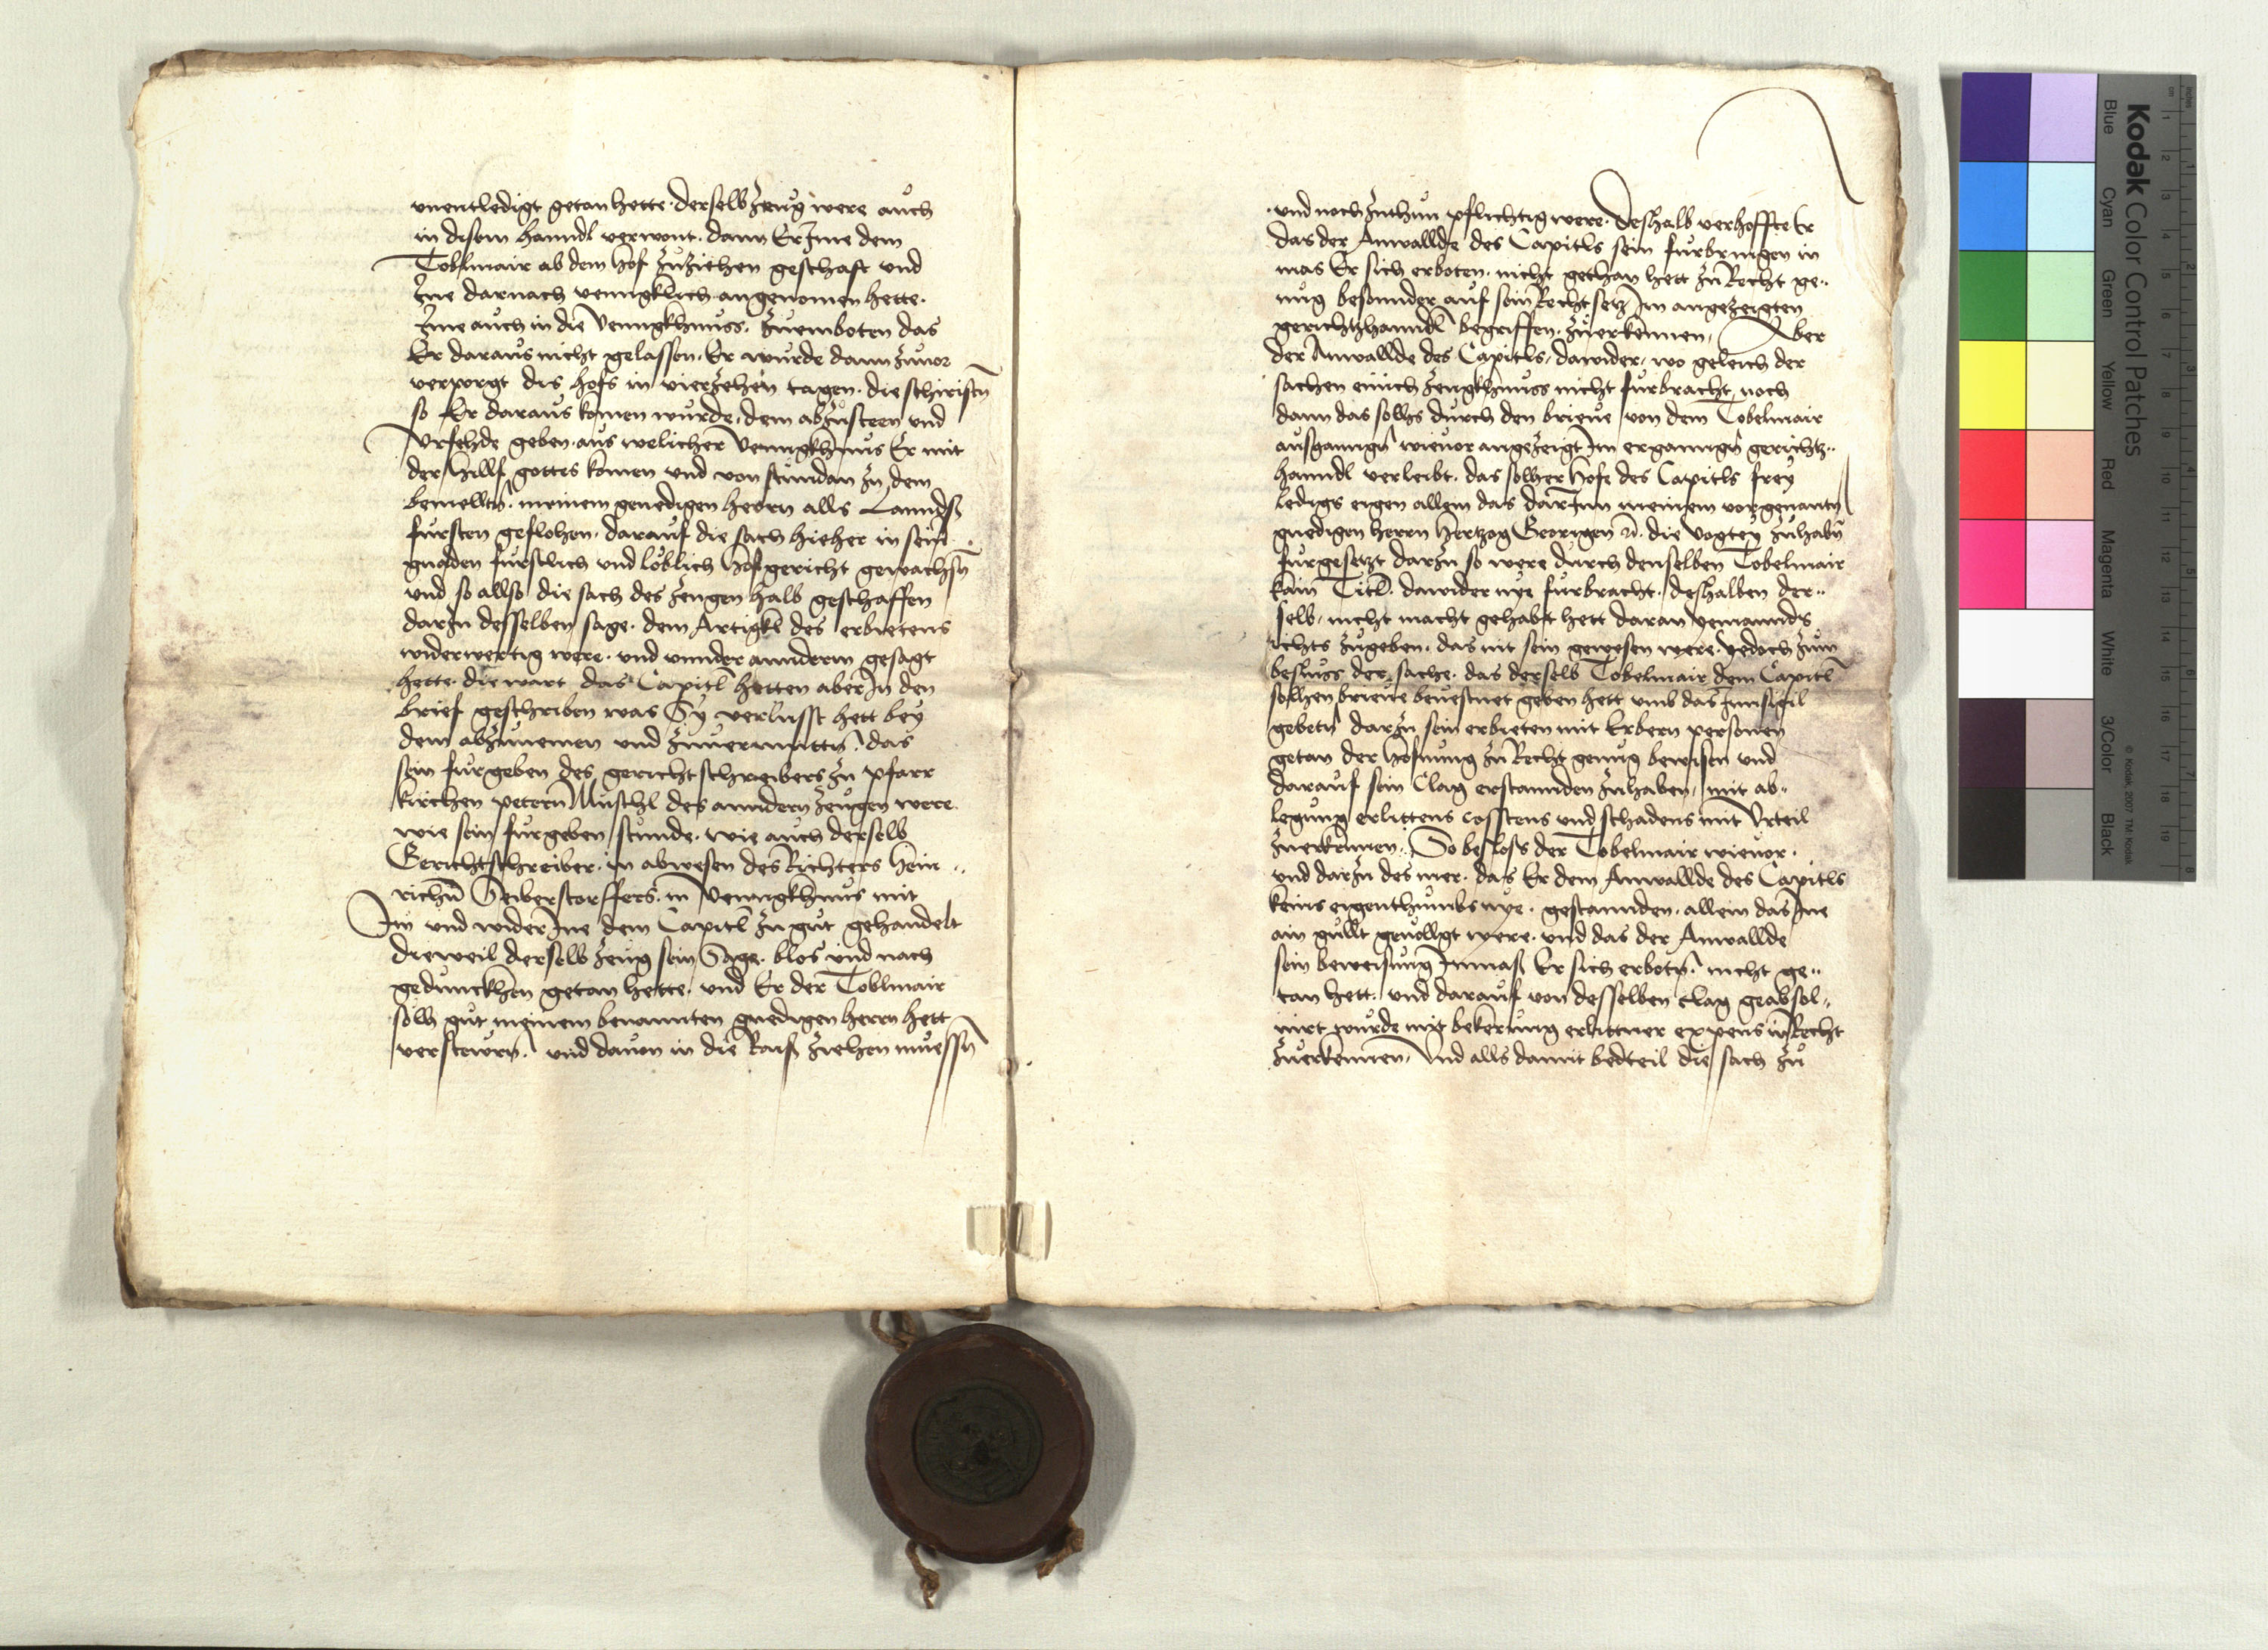 vnentledigt getan hette. derselb Zeug were auch
in disem hanndl verwont. dann Er Ime dem
Toblmair ab dem hof zuziehen geschaft vnd
Ine darnach venngklich angenomen hette.
Ime auch in die venngkhnuss. zuemboten das
Er daraus nicht gelassen. Er wurde dann zuuor
verporgt des hofs in vierzehen tagen. die schiristn
so Er daraus komen wurde, dem abzusteen vnd
vrfehde geben. aus welicher venngkhnus Er mit
der hillf gottes komen vnd von stundan zu dem
bemelltn. meinem genedigen herrn alls Lannds
fursten geflohen. darauf die sach hieher in sein
gnaden furstlich vnd loblich hofgericht gewachsn
vnd so allso die sach des zeugen halb geschaffen
darzu desselben sage. dem Artigkl des erbietens
widerwertig were. vnd vnnder annderm gesagt
hette. die wart das Capitl hetten aber In den
brief geschriben was Sy verlusst hett bey
dem abzunemen vnd zuuermuttn. das
sein furgeben des gerichtschreibers zu pfarr
kirchen petern Muschl des anndern zeugen were
wie sein furgeben stunde. wie auch derselb
Gerichtschreiber. in abwesen des Richters hein..
richn Seiberstorffers. in venngkhnus mit
Im vnd wider Ine dem Capitl zu gut gehandelt
dieweil derselb zeug sein Sage. blos vnd nach
geduncklhen getan hette. vnd Er der Toblmair
solh gut meinem benannten gnedigen herrn hett
verstewrn. vnd dauon in die Rais ziehen muessn
vnd noch zuthun pflichtig were. deshalb verhoffte Er
das der Anwallde des Capitls sein furbringen in
mas Er sich erboten. nicht gethan hett zu Recht ge..
nug besonnder auf sein Rechtsetz Im angezeigten
gerichtzhanndl begriffen. zuerkennen, Aber
der Anwallde des Capitls, dawider, wo geleich der
sachen einich zeugkhnuss nicht furbracht, noch
dann das sollhs durch den brieue von dem Tobelmair
ausganngn wieuor angezeigt Im erganngn gerichtz..
hanndl verleibt. das solher hofe des Capitls frey
ledigs eigen allem das darInn meinem vorgenantn
gnedigen herrn hertzog Georigen etc. die vogtey zuhabn
furgesetzt darzu so were durch denselben Tobelmair
kain Titl. dawider nye furbracht. deshalben der..
selb, nicht macht gehabt hett daran yemannds
ichts zugeben. das nit sein gewesen were. yedoch zum
besluss der sache. das derselb Tobelmair dem Capitl
solhen brieue beuestnet geben hett vmb das Innsigil
gebetn darzu sein erbieten mit Erbern personen
getan der hofnung zu Recht genug bewisen vnd
darauf sein Clag erstannden zuhaben, mit ab..
legung erlittens cosstens vnd schadens mit Vrteil
zuerkennen. So beslos der Tobelmair wieuor.
vnd darzu des mer. das Er dem Anwallde des Capitls
keins eigenthumbs nye. gestannden. allein das Ine
ain gullt geuollgt were. vnd das der Anwallde
sein beweisung Inmass Er sich erbotn. nicht ge..
tan hett. vnd darauf von desselben clag geabsol..
uirt wurde mit bekerung erlittner expens in Recht
zuerkennen, Vnd alls damit bedteil die sach zu
Kodak Color Control Patches
Blue Cyan Green Yellow Red Magenta White 3/Color Black
© Kodak, 2007 TM: Kodak